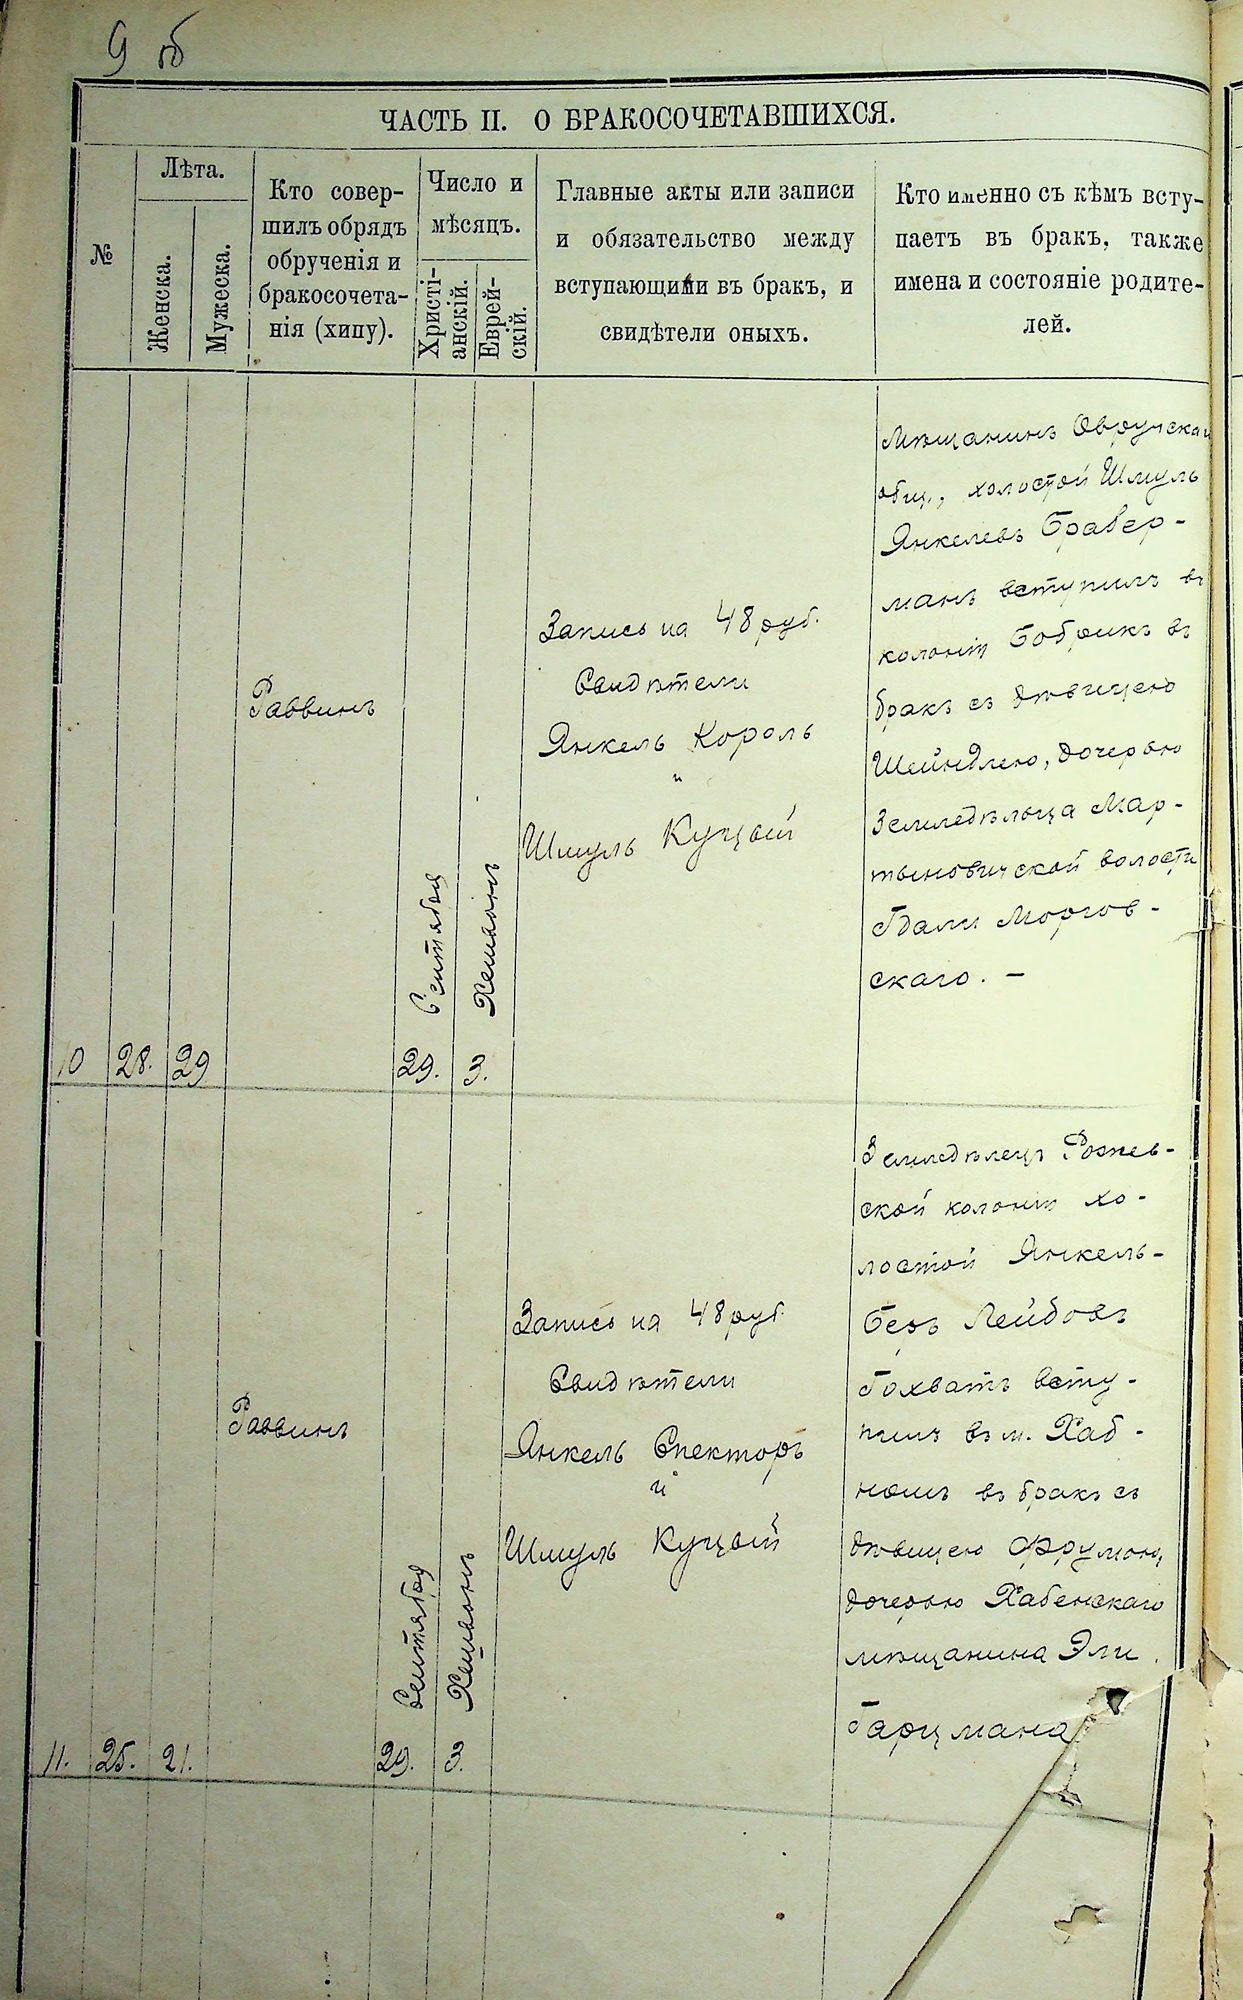 9 об
ЧАСТЬ II. О БРАКОСОЧЕТАВШИХСЯ.
№
Лѣта.
Женска.
Мужеска.
Кто совер-
шилъ обрядъ
обрученія и
бракосочета-
нія (хипу).
Число и
мѣсяцъ.
Христі-
анскій.
Еврей-
скій.
Главные акты или записи
и обязательство между
вступающими въ бракъ, и
свидѣтели оныхъ.
Кто именно съ кѣмъ всту-
паетъ въ бракъ, также
имена и состояніе родите-
лей.
10
28.
29
Раввинъ
Сентября
29.
Хешвонъ
3.
Запись на 48 руб.
Свидѣтели
Янкель Король
и
Шмуль Куцый
Мѣщанинъ Овручска
общ., холостой Шмуль
Янкелевъ Бравер-
манъ вступилъ въ
колоніи Бобрикъ въ
бракъ съ дѣвицею
Шейндлею, дочерью
Земледѣльца Мар-
тыновичской волости
Гдали Моргов-
скаго. —
11.
25.
21.
Раввинъ
Сентября
29.
Хешвонъ
3.
Запись на 48 руб
Свидѣтели
Янкель Спекторъ
и
Шмуль Куцый
Земледѣлецъ Рожев-
ской колоніи хо-
лостой Янкель-
Беръ Лейбовъ
Гохватъ всту-
пилъ въ м. Хаб-
номъ въ бракъ съ
дѣвицею Фрумою,
дочерью Хабенскаго
мѣщанина Эли
Гарцмана